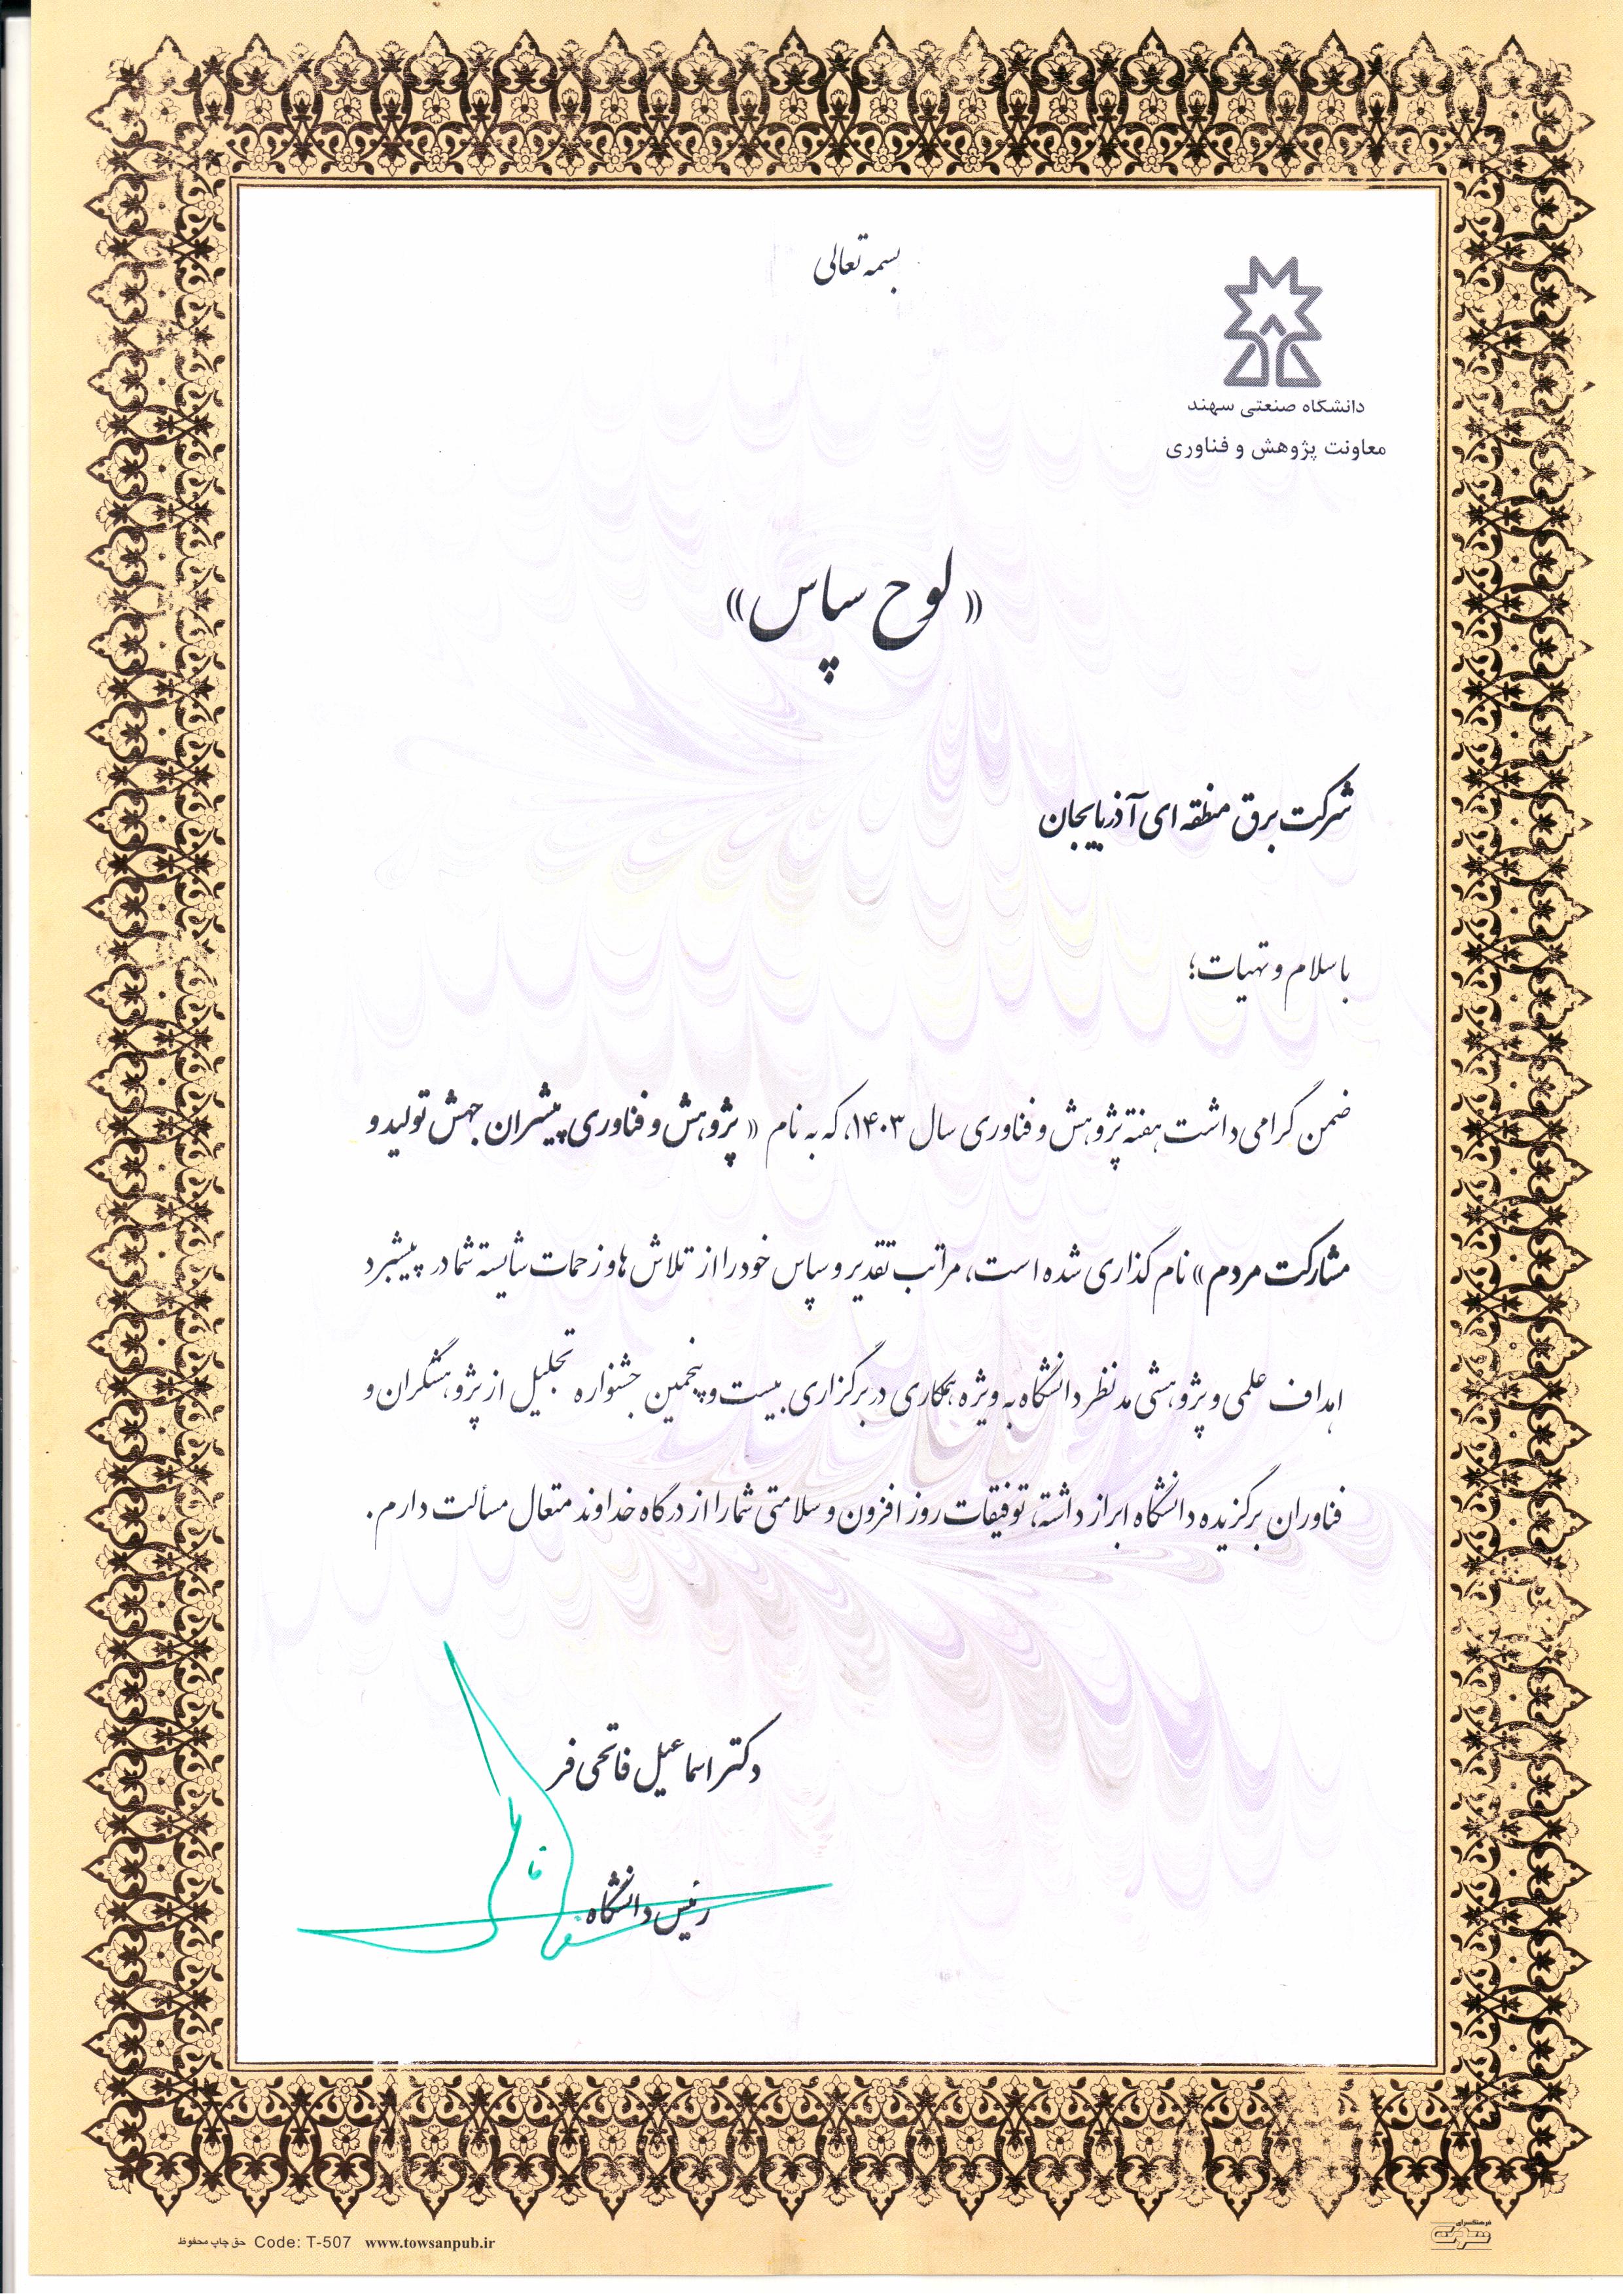 بسمه تعالی
دانشگاه صنعتی سهند
معاونت پژوهش و فناوری
« لوح سپاس»
شرکت برق منطقه ای آذربایجان
با سلام و تهیات؛
ضمن گرامی داشت هفته پژوهش و فناوری سال ۱۴۰۳، که به نام « پژوهش و فناوری پیشران جهش تولید و
مشارکت مردم» نام گذاری شده است، مراتب تقدیر و سپاس خود را از تلاش ها و زحمات شایسته شما در پیشبرد
اهداف علمی و پژوهشی مد نظر دانشگاه به ویژه همکاری در برگزاری بیست و پنجمین جشنواره تجلیل از پژوهشگران و
فناوران برگزیده دانشگاه ابراز داشته، توفیقات روز افزون و سلامتی شما را از درگاه خداوند متعال مسألت دارم.
دکتر اسماعیل فاتحی فر
رئیس دانشگاه
حق چاپ محفوظ Code: T-507 www.towsanpub.ir